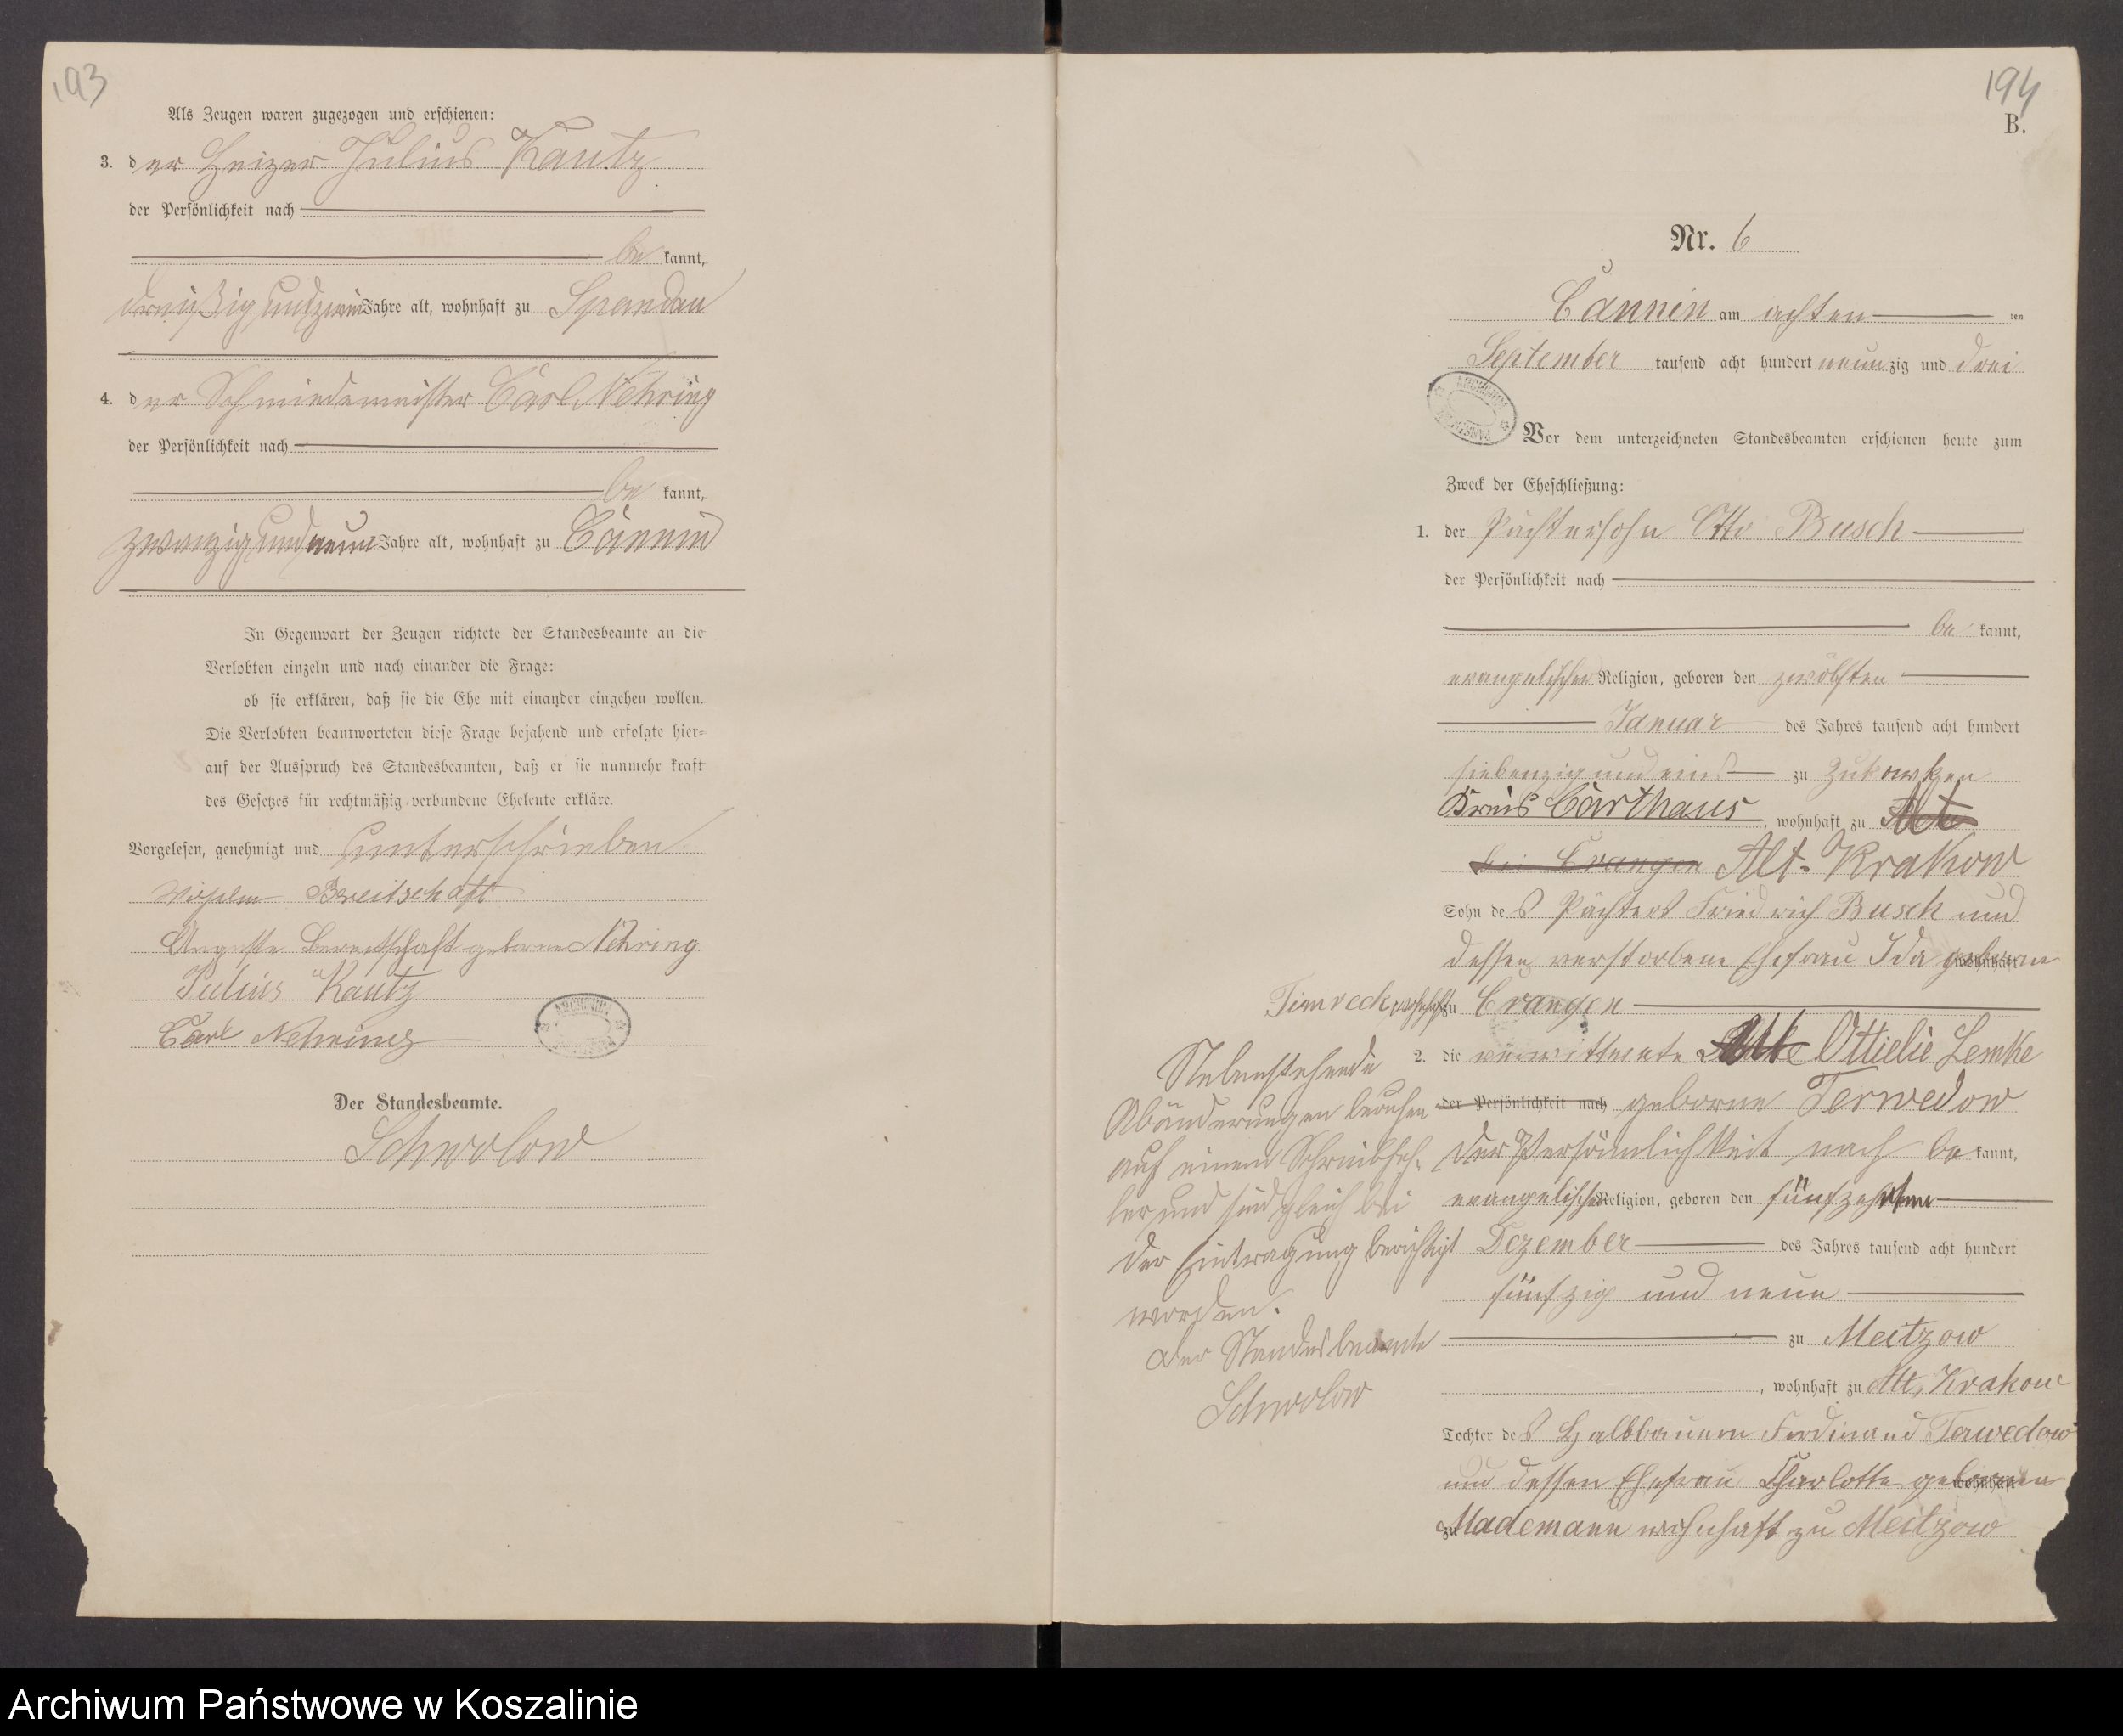 193
Als Zeugen waren zugezogen und erschienen:
3. der Heizer Julius Kautz
der Persönlichkeit nach
be kannt,
dreißig und zwei Jahre alt, wohnhaft zu Spandau
4. der Schmiedemeister Carl Nehring
der Persönlichkeit nach
be kannt,
zwanzig und neun Jahre alt, wohnhaft zu Cannin
In Gegenwart der Zeugen richtete der Standesbeamte an die
Verlobten einzeln und nach einander die Frage:
ob sie erklären, daß sie die Ehe mit einander eingehen wollen.
Die Verlobten beantworteten diese Frage bejahend und erfolgte hier=
auf der Ausspruch des Standesbeamten, daß er sie nunmehr kraft
des Gesetzes für rechtmäßig verbundene Eheleute erkläre.
Vorgelesen, genehmigt und unterschrieben
Breitschaft
Auguste Breitschaft geborne Nehring
Julius Kautz
Carl Nehring
ARCHIWUM
Der Standesbeamte.
Schwolow
194
B.
Nr. 6
Cannin am achten ten
September tausend acht hundert neunzig und drei
ARCHIWUM
Vor dem unterzeichneten Standesbeamten erschienen heute zum
Zweck der Eheschließung:
1. der Pächtersohn Otto Busch
der Persönlichkeit nach
be kannt,
evangelischer Religion, geboren den zwölften
Januar des Jahres tausend acht hundert
siebenzig und eins zu Zukowken
Kreis Carthaus, wohnhaft zu Alt
bei Crangen Alt-Krakow
Sohn des Pächters Friedrich Busch und
dessen verstorbene Ehefrau Ida geborne
wohnhaft zu Crangen
2. die verwittwete Ottielie Lemke
der Persönlichkeit nach geborne Terwedow
der Persönlichkeit nach be kannt,
evangelischer Religion, geboren den fünfzehnten
Dezember des Jahres tausend acht hundert
fünfzig und neun
zu Meitzow
, wohnhaft zu Alt-Krakow
Tochter des Halbbauern Ferdinand Terwedow
und dessen Ehefrau Charlotte geborenen
zu Mademann wohnhaft zu Meitzow
Nebenstehende
Abänderungen beruhen
auf einem Schreibfeh-
ler und sind gleich bei
der Eintragung berichtigt
worden.
Der Standesbeamte
Schwolow
Archiwum Państwowe w Koszalinie